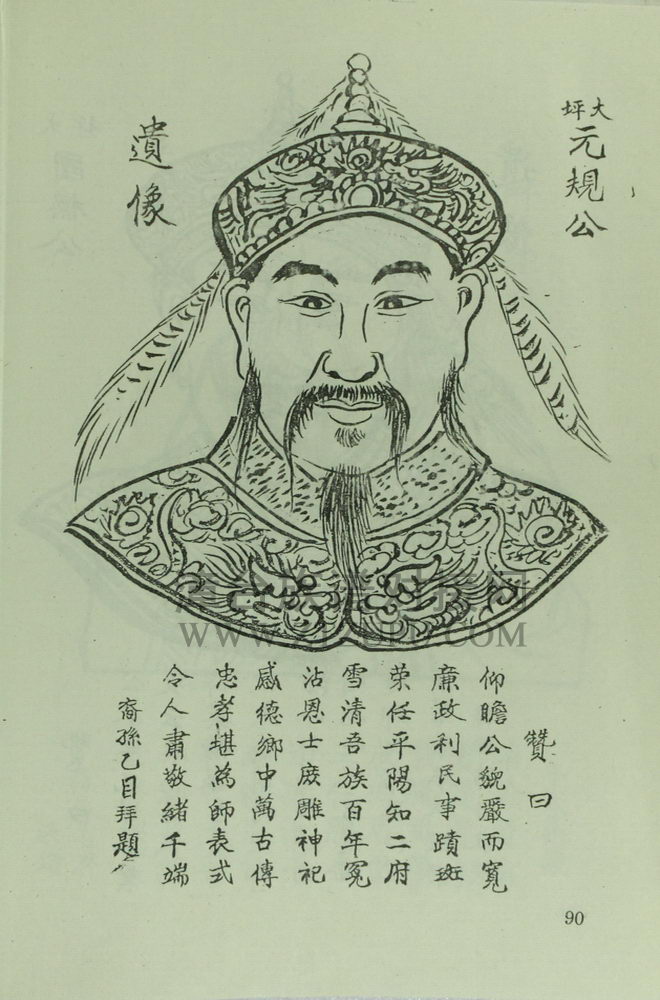 大坪
元規公
遺像
贊曰
仰瞻公貌嚴而寬
廉政利民事蹟斑
荣任平陽知二府
雪清吾族百年冤
沾恩士庶雕神祀
感德鄉中萬古傳
忠孝堪為師表式
令人肅敬緒千端
裔孫乙目拜題
90